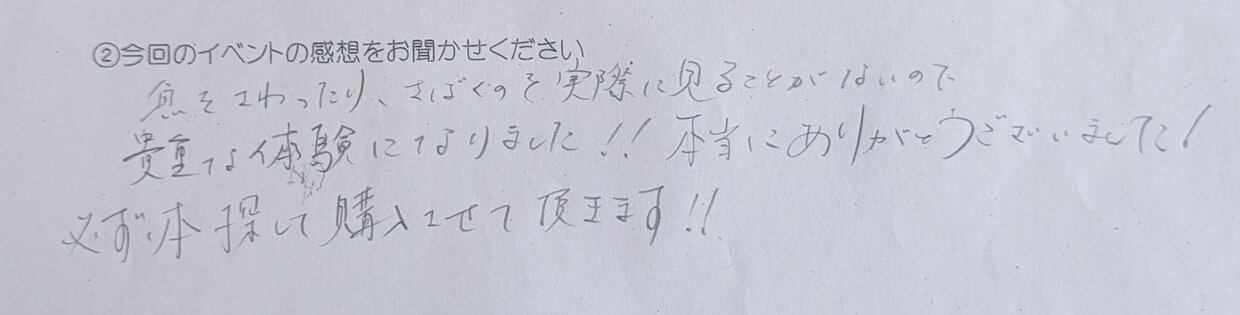 ②今回のイベントの感想をお聞かせください
魚をさわったり、さばくのを実際に見ることがないので
貴重な体験になりました!! 本当にありがとうございました!
必ず本探して購入させて頂きます!!